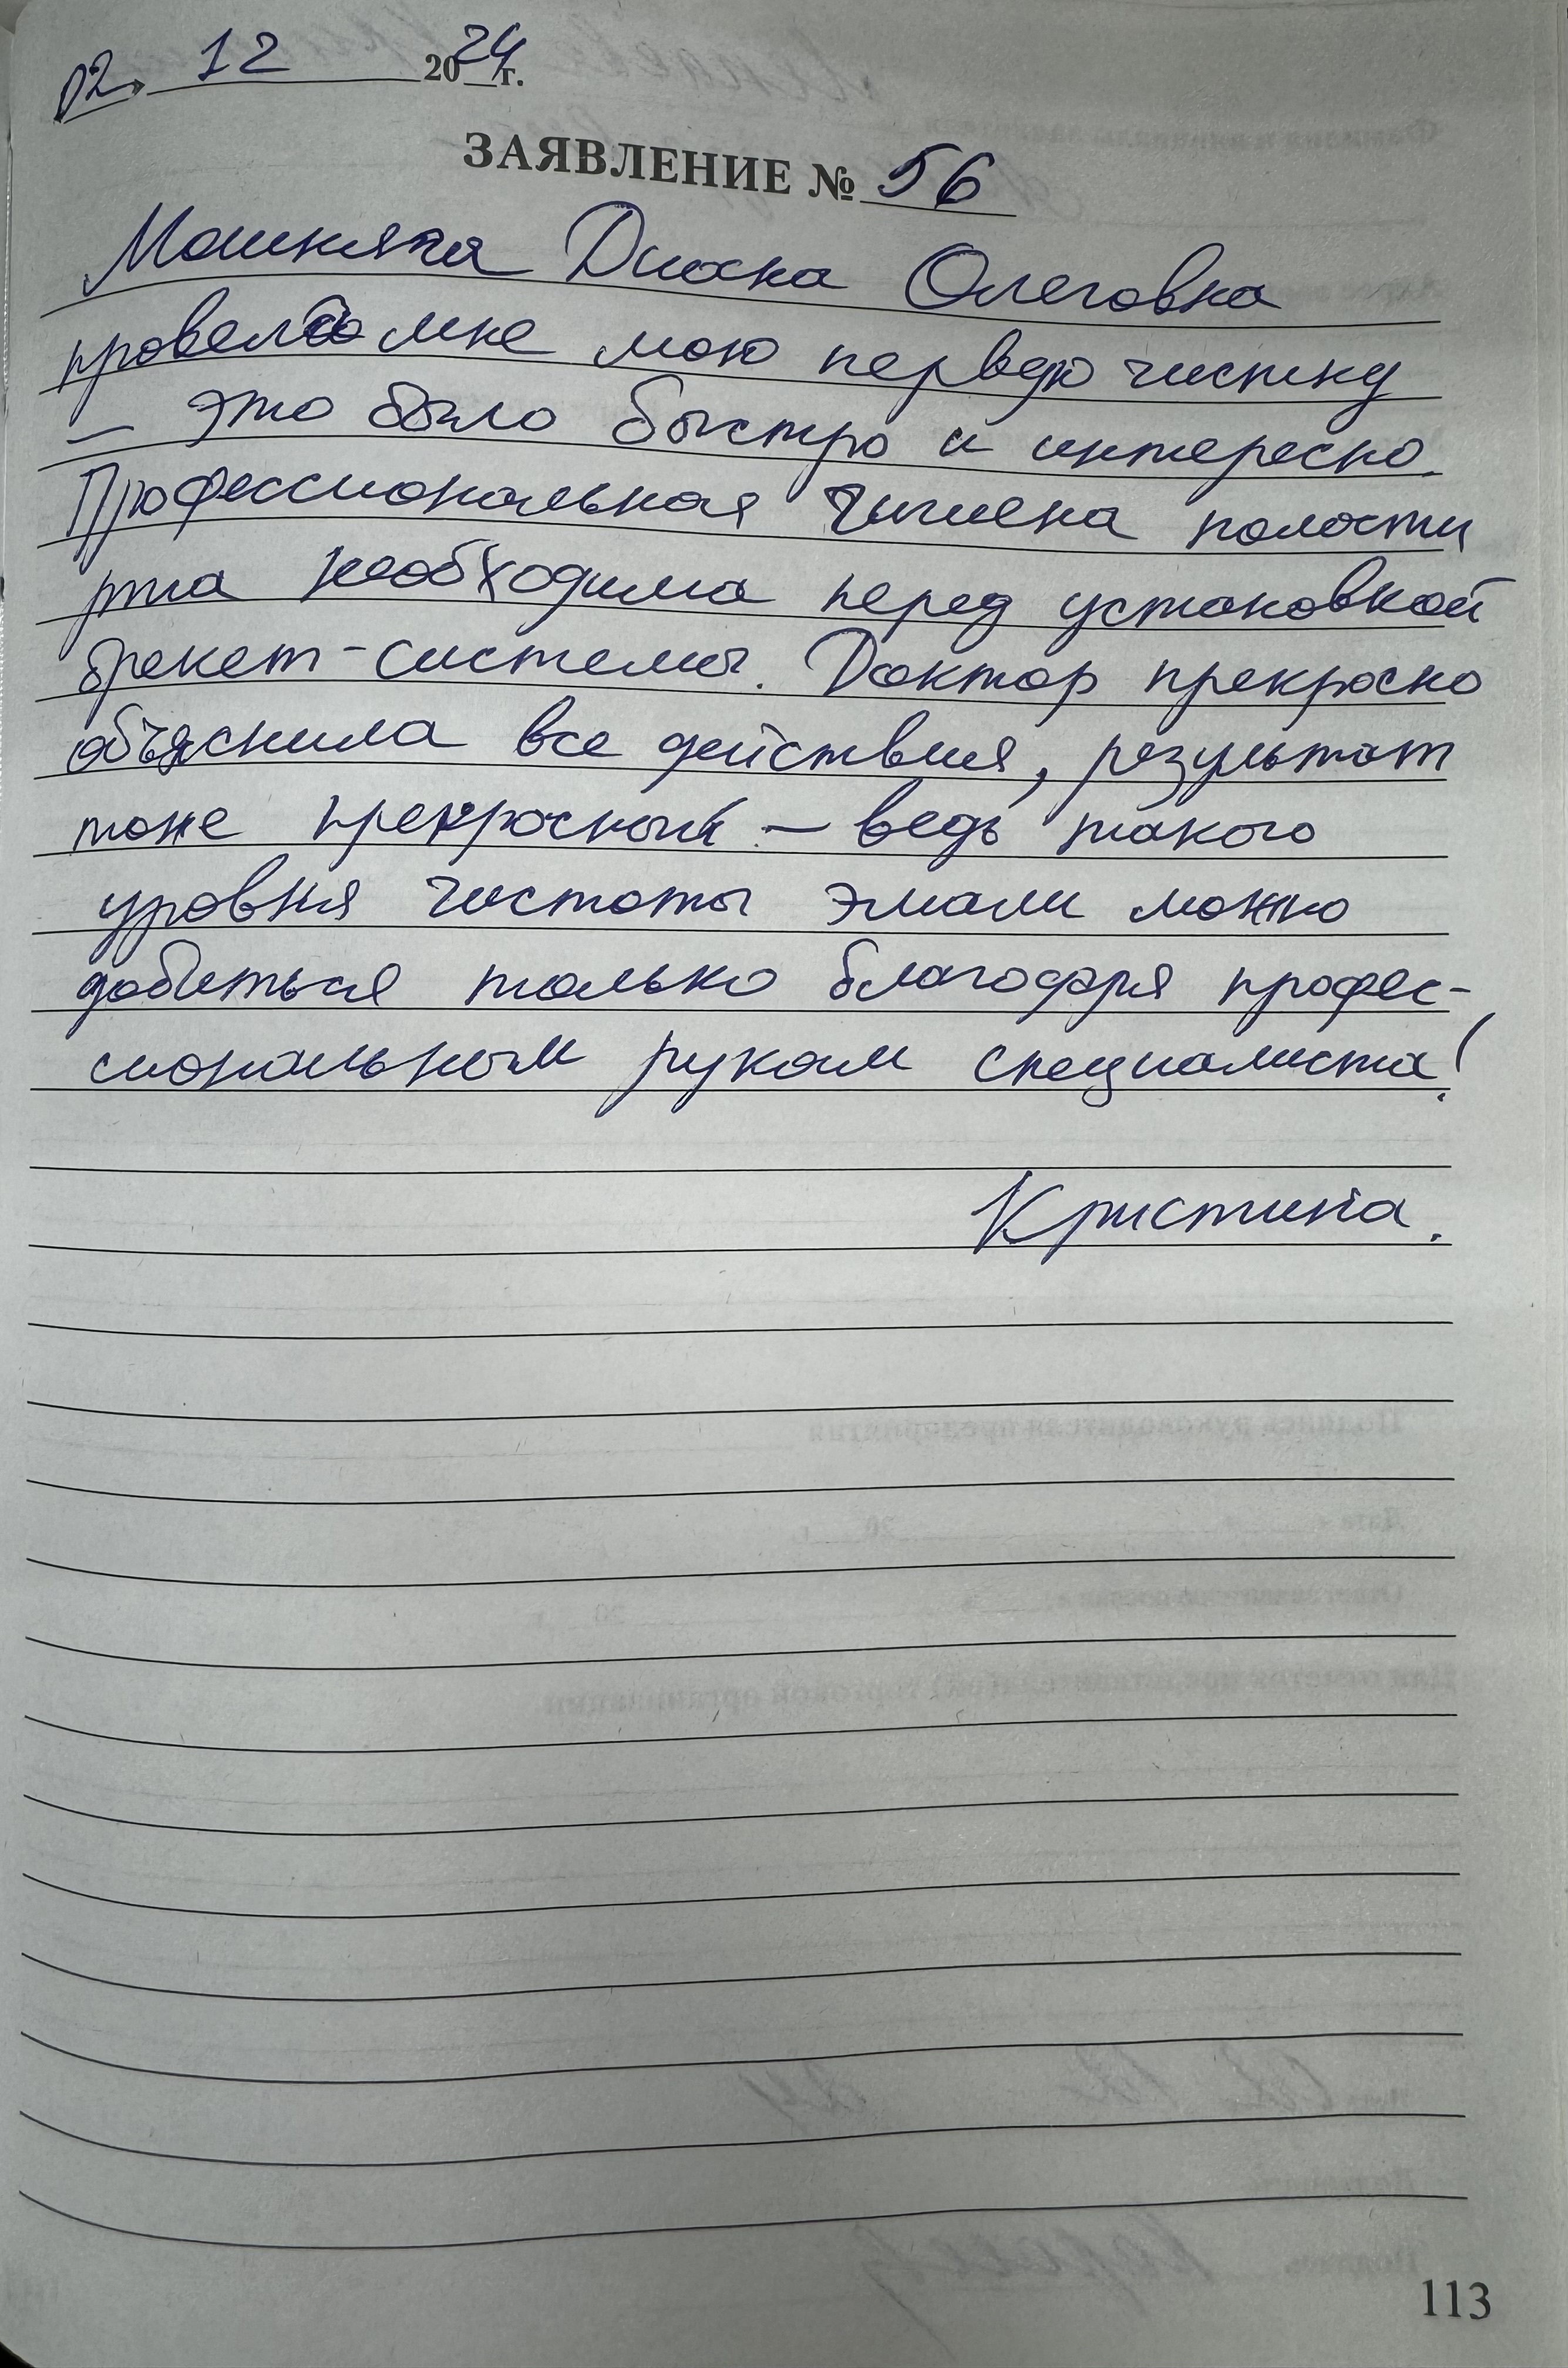 02. 12 2024 г.
ЗАЯВЛЕНИЕ № 56
Диана Олеговна
провела мне мою первую чистку
– это было быстро и интересно.
Профессиональная гигиена полости
рта необходима перед установкой
брекет-системы. Доктор прекрасно
объяснила все действия, результат
тоже прекрасный – ведь такого
уровня чистоты эмали можно
добиться только благодаря профес-
сиональным рукам специалиста!
Кристина.
113